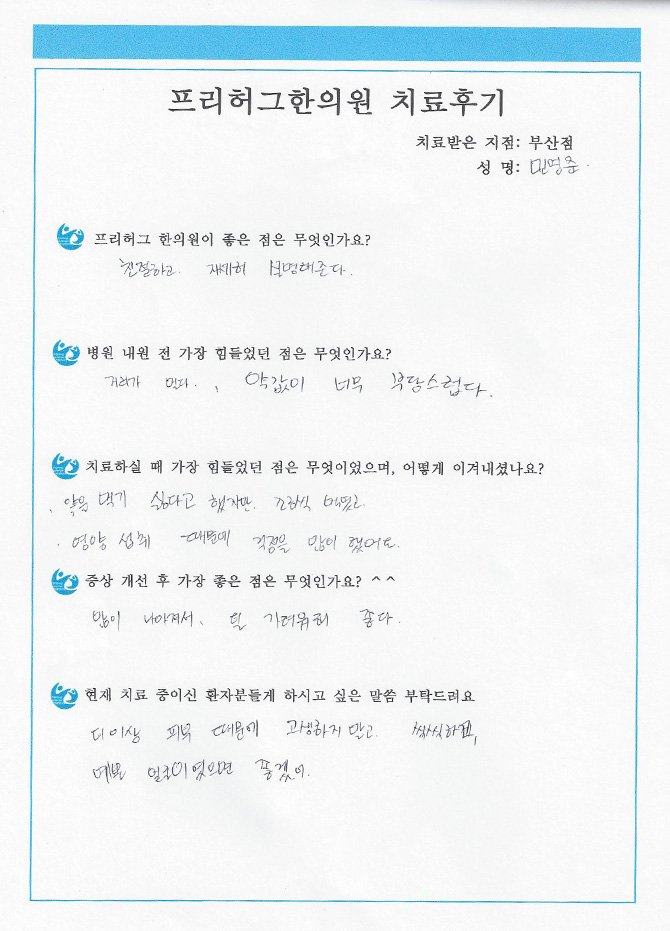 프리허그한의원 치료후기
치료받은 지점: 부산점
성 명: 민영준
프리허그 한의원이 좋은 점은 무엇인가요?
친절하고. 재세히 설명해준다.
병원 내원 전 가장 힘들었던 점은 무엇인가요?
거리가 멀다. , 약값이 너무 부담스럽다.
치료하실 때 가장 힘들었던 점은 무엇이었으며, 어떻게 이겨내셨나요?
. 약을 먹기 싫다고 했지만. 조금씩
. 영양 섭취 때문에 걱정을 많이 했어요.
증상 개선 후 가장 좋은 점은 무엇인가요? ^^
많이 나아져서, 덜 좋다.
현재 치료 중이신 환자분들게 하시고 싶은 말씀 부탁드려요
더이상 피부 때문에 고생하지 말고.
예쁜 얼굴이였으면 좋겠어.